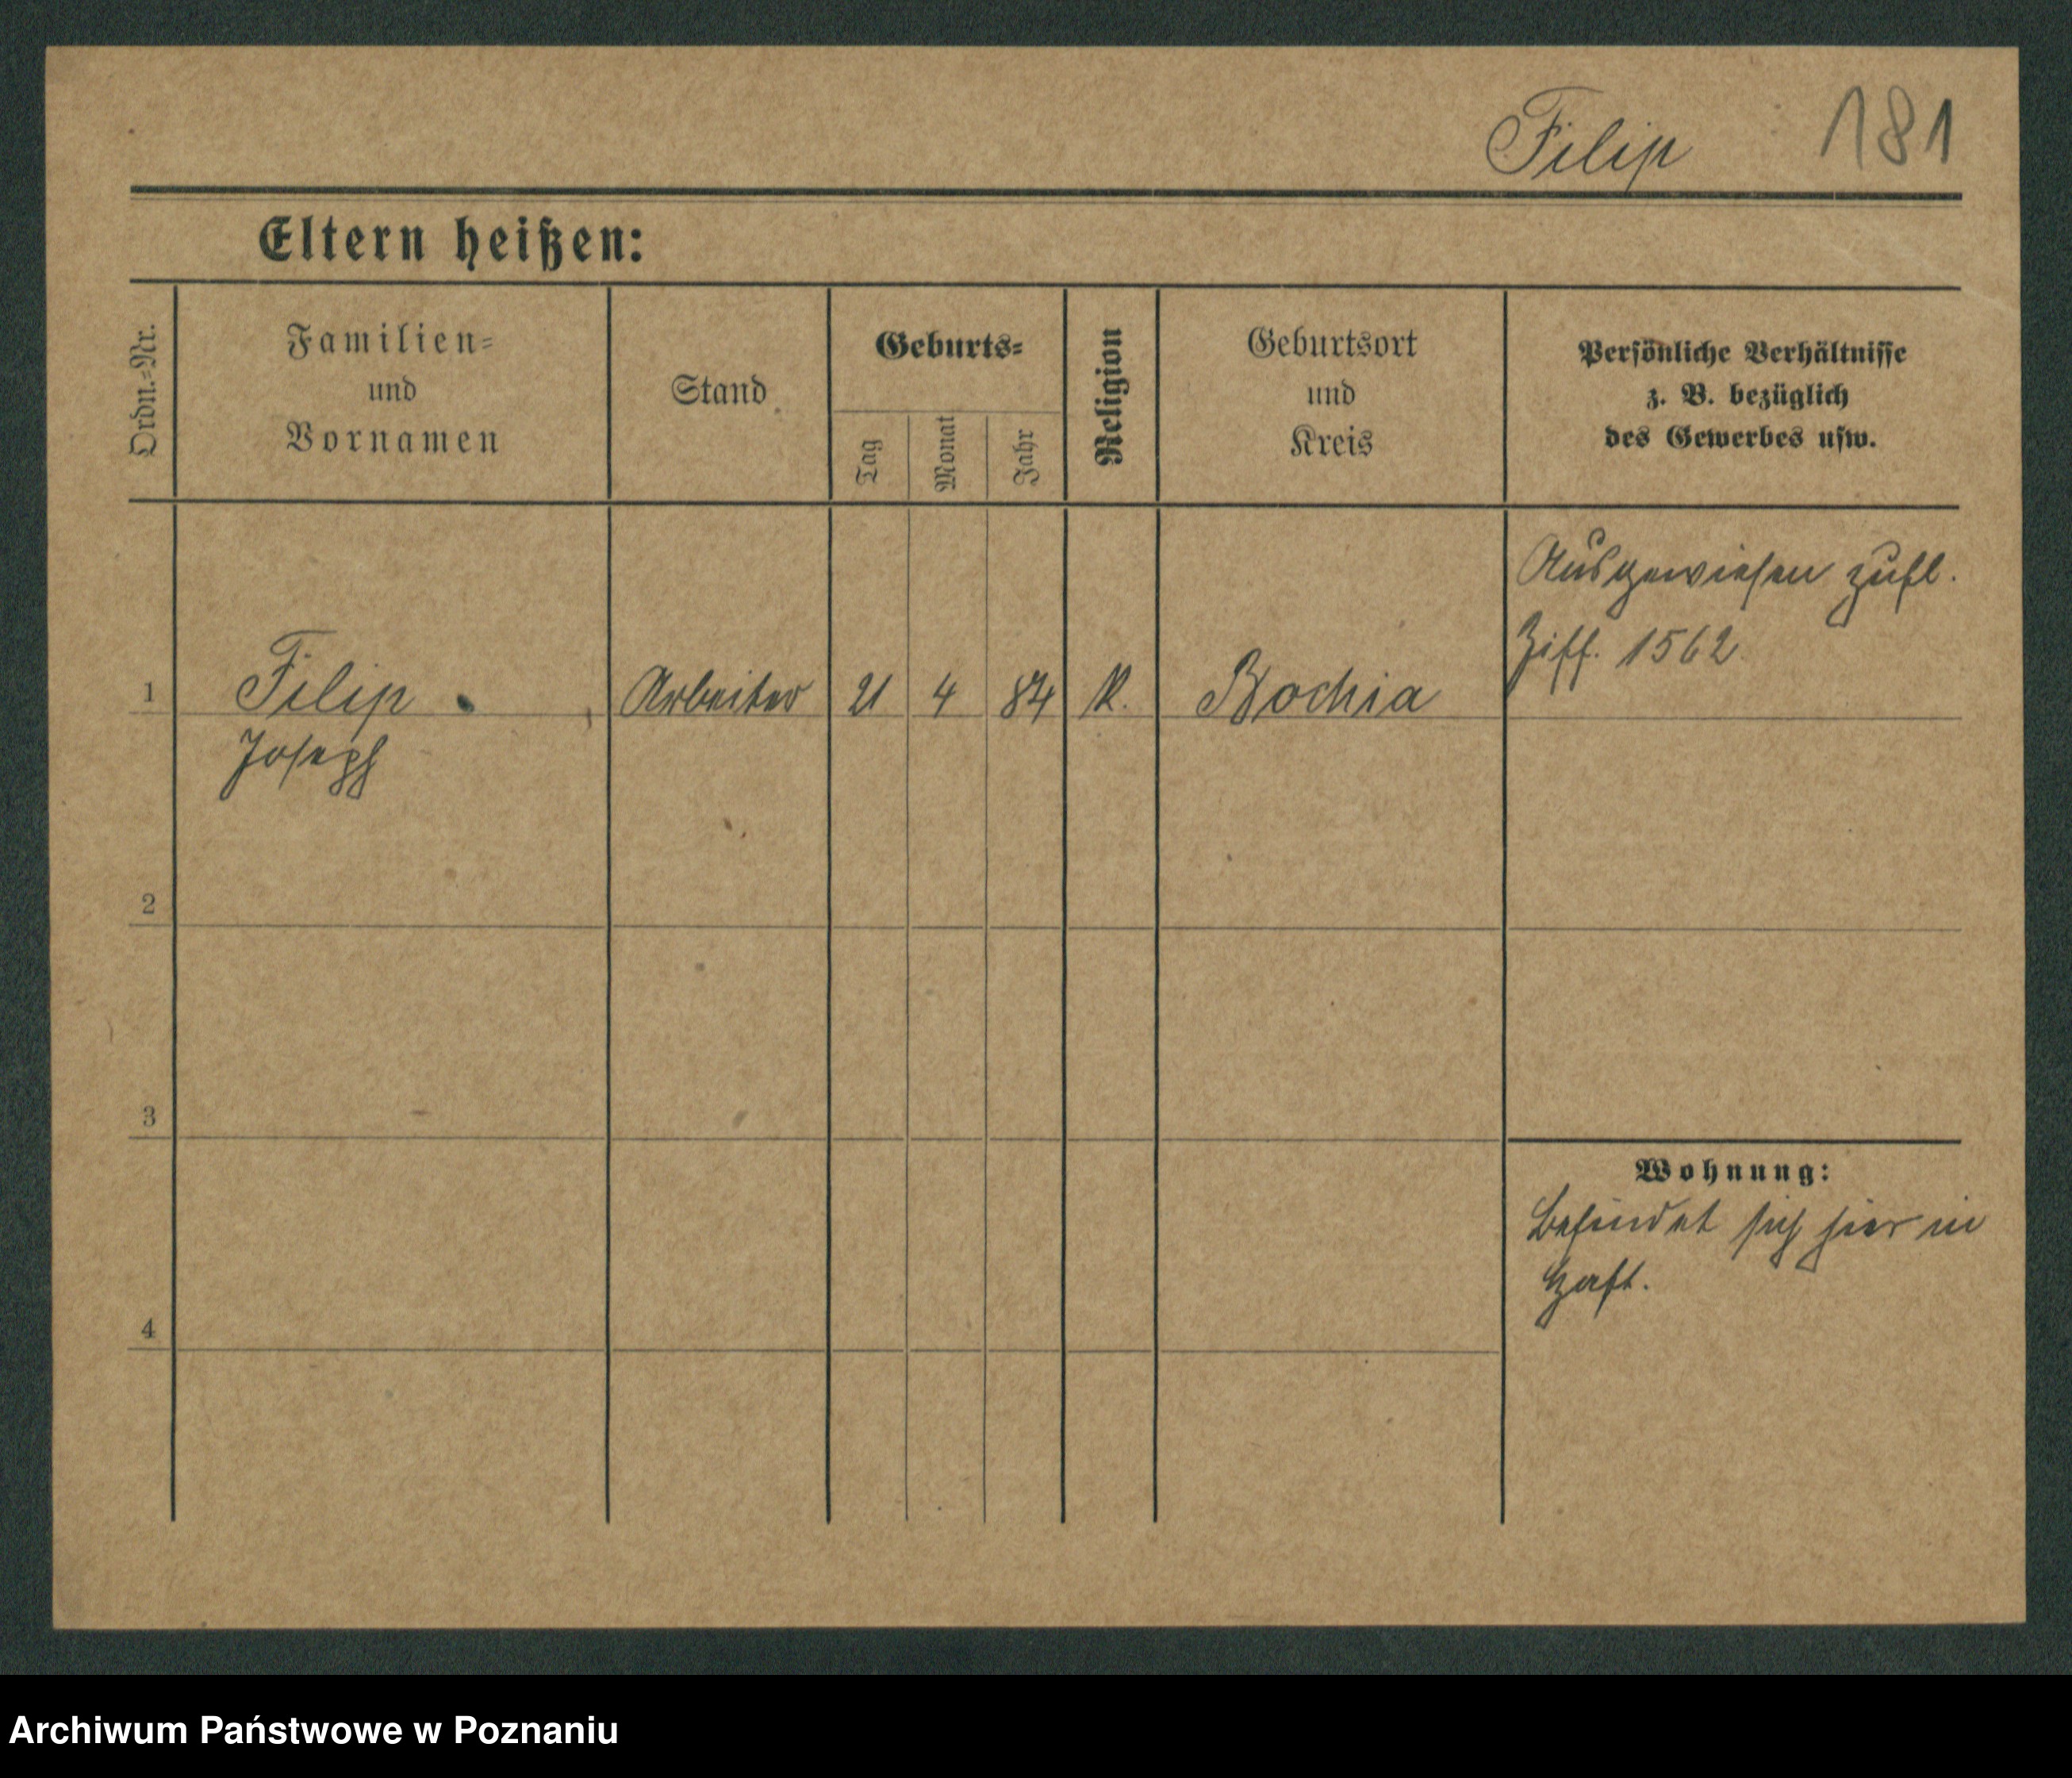 Filip 181
Eltern heißen:
Ordn.-Nr.
Familien-
und
Vornamen
Stand
Geburts-
Tag
Monat
Jahr
Religion
Geburtsort
und
Kreis
Persönliche Verhältnisse
z. B. bezüglich
des Gewerbes usw.
Ausgewiesen
Ziff. 1562.
1 Filip Arbeiter 21 4 84 K. Bochia
Joseph
2
3
Wohnung:
Befindet sich hier in
Haft.
4
Archiwum Państwowe w Poznaniu